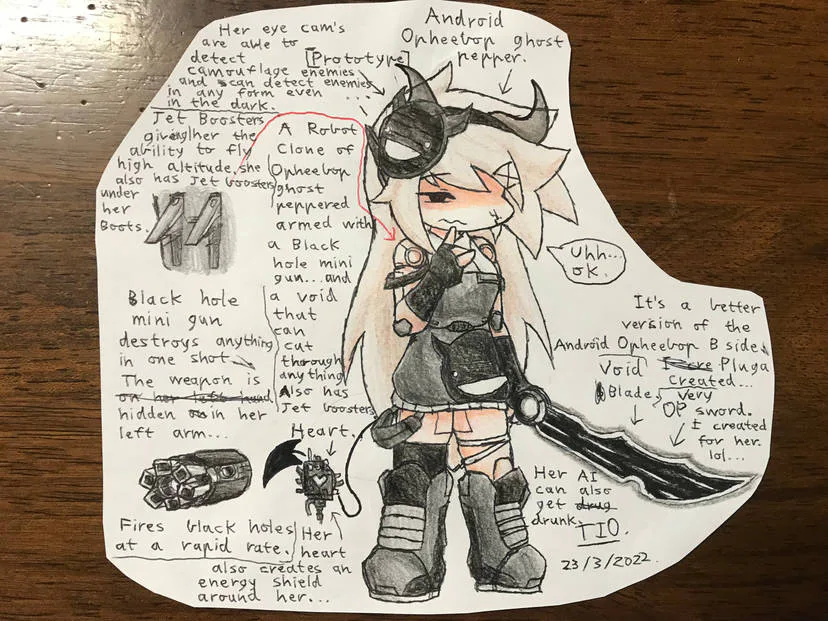 Android
Opheebop ghost
pepper.
[Prototype]
Her eye cam's
are able to
detect
camouflage enemies
and scan detect enemies
in any form even ...
in the dark.
Jet Boosters
giving her the
ability to fly
high altitude, she
also has Jet boosters
under
her
Boots.
A Robot
Clone of
Opheebop
ghost
peppered
armed with
a Black
hole mini
gun...and
a void
that
can
cut
thorough
anything
Also has
Jet boosters
Black hole
mini gun
destroys anything
in one shot.
The weapon is
on her left hand
hidden in her
left arm...
Fires black holes
at a rapid rate.
Heart.
Her
heart
also creates an
energy shield
around her...
Uhh...
ok.
It's a better
version of the
Android Opheebop B side
Void
Blade
Pluga
Created...
Very
OP sword.
I created
for her.
lol...
Her AI
can also
get drug
drunk.
TIO.
23/3/2022.